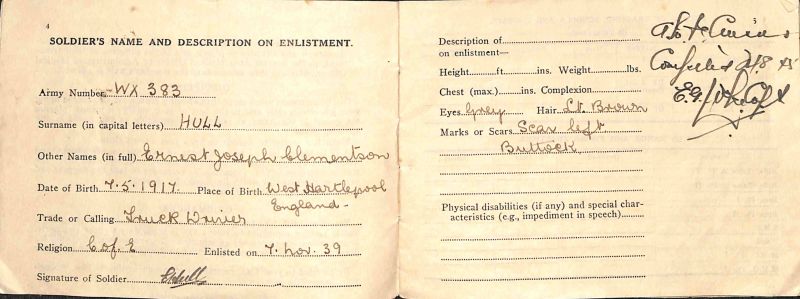 4
SOLDIER'S NAME AND DESCRIPTION ON ENLISTMENT.
Army Number WX 383
Surname (in capital letters) HULL
Other Names (in full) Ernest Joseph Clementson
Date of Birth 7.5.1917. Place of Birth West Hartlepool
England
Trade or Calling Truck Driver
Religion C of E Enlisted on 7. Nov. 39
Signature of Soldier EHull
Description of
on enlistment—
Height ft ins. Weight lbs.
Chest (max.) ins. Complexion
Eyes Grey Hair Lt. Brown
Marks or Scars Scar left
Buttock
Physical disabilities (if any) and special char-
acteristics (e.g., impediment in speech)